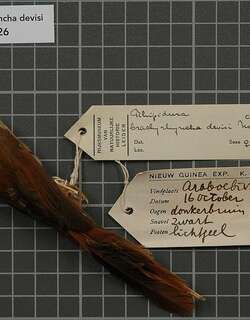 ncha devisi
26
RIJKSMUSEUM
VAN
NATUURLIJKE
HISTORIE
LEIDEN
Rhipidura
brachyrhyncha devisi
Dat.
Sexe
NIEUW GUINEA EXP. K.
Vindplaats Araboebiv
Datum 16 October
Oogen donkerbruin
Snavel zwart
Pooten lichtgeel